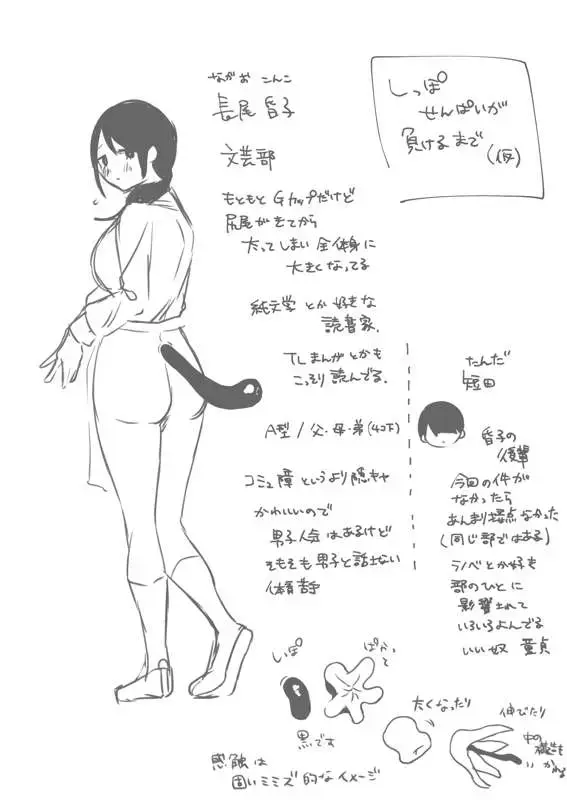 しっぽ
せんぱいが
負けるまで
(仮)
ながお こんこ
長尾 昏子
文芸部
もともと Gカップだけど
尻尾がきてから
太ってしまい 全体身に
大きくなってる
純文学とか好きな
読書家。
TLまんがとかも
こっそり読んでる。
A型 / 父・母・弟(4コ下)
コミュ障というより陰キャ
かわいいので
男子人気はあるけど
そもそも男子と話さない
体育苦手
たんだ
短田
昏子の
後輩
今回の件が
なかったら
あんまり接点なかった
(同じ部ではある)
ラノベとか好き
部のひとに
影響されて
いろいろよんでる
いい奴 童貞
しっぽ
ぱかって
黒です
太くなったり
伸びたり
中の
構造も
かわる
感触は
固いミミズ的なイメージ